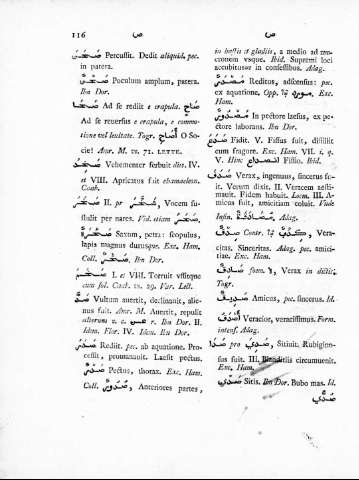 116
ص
ص
صَحَنَ Percussit. Dedit aliquid, pec.
in patera.
صَحْنٌ Poculum amplum, patera.
Ibn Dor.
صَحَا Ad se rediit e crapula. صَاحٍ
Ad se reuersus e crapula, e commo-
tione vel leuitate. Togr. أَصَاحِ O So-
cie! Amr. M.
Vehementer feruuit dies. IV.
et VIII. Apricatus fuit chamaeleon.
Coab.
II. pr Vocem fu-
stulit per nares. Vid. etiam
صَخْرَةٌ Saxum, petra: scopulus,
lapis magnus durusque. Exc. Ham.
Coll. صَخْرٌ Ibn Dor.
I. et VIII. Torruit vstique
cum sol. Var. Lect.
صَدَّ Vultum auertit, declinauit, alie-
nus fuit. Amr. M. Auertit, repulit
alterum c. عن r. Ibn Dor. II.
Idem. Flor. IV. Idem. Ibn Dor.
صَدَرَ Rediit. pec. ab aquatione. Pro-
cessit, promanauit. Laesit pectus.
صَدْرٌ Pectus, thorax. Exc. Ham.
Coll. صُدُورٌ, Anteriores partes,
in hastis et gladiis, a medio ad mu-
cronem vsque. Ibid. Supremi loci
accubitusve in consessibus. Adag.
Reditus, adscensus: pec.
ex aquatione, Opp. Exc.
Ham.
مَصْدُورٌ In pectore laesus, ex pe-
ctore laborans. Ibn Dor.
صَدَعَ Fidit. V. Fissus fuit, dissiliit
cum fragore. Exc. Ham. VII. i. q.
V. Him انصداع Fissio. Ibid.
صَدَقَ Verax, ingenuus, sincerus fu-
it. Verum dixit. II. Veracem aesti-
mauit. Fidem habuit. Locm. III. A-
micus fuit, amicitiam coluit. Vnde
Infin. مُصَادَقَةٌ. Adag.
صِدْقٌ Contr. Vera-
citas, Sinceritas. Adag. pec. amici-
tiae. Exc. Ham.
صَادِقٌ foem. ة, Verax in dictis.
Togr.
صَدِيقٌ Amicus, pec. sincerus. Id.
أَصْدَقُ Veracior, veracissimus. Form.
intens. Adag.
صَدِيَ pro صَدَا, Sitiuit. Rubigino-
sus fuit. III. Blanditiis circumuenit.
Exc. Ham.
صَدًى Sitis. Ibn Dor. Bubo mas. Id.
صَدِيٌّ